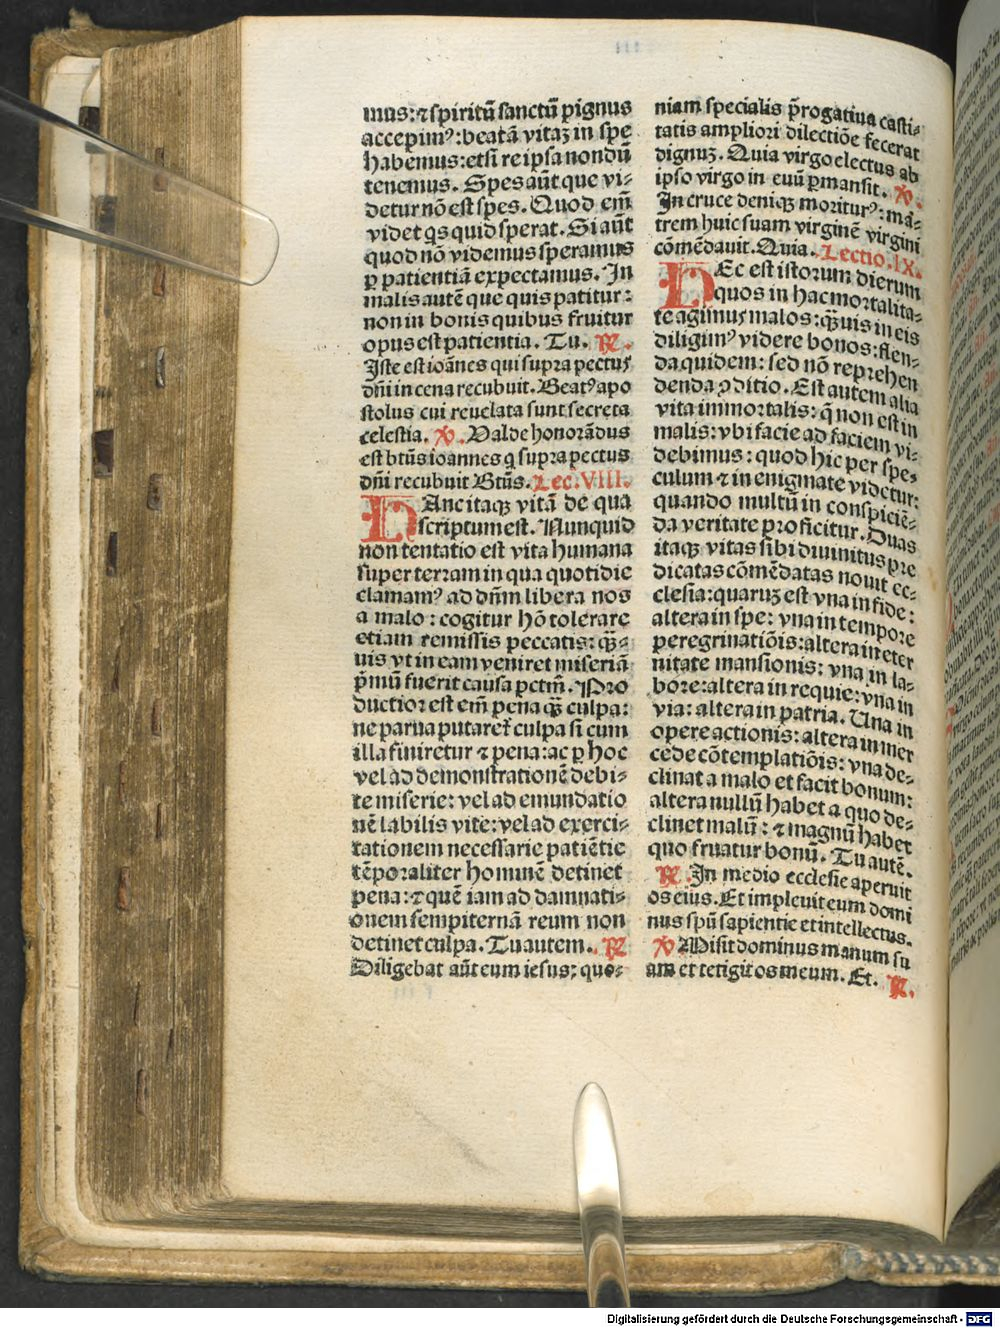 mus: ⁊ spiritū sanctū pignus
accepimꝰ: beatā vitaʒ in spe
habemus: etsi re ipsa nondū
tenemus. Spes aūt que vi⸗
detur nō est spes. Quod em̄
videt qs quid sperat. Si aūt
quod nō videmus speramus
ꝑ patientiā expectamus. In
malis autē que quis patitur:
non in bonis quibus fruitur
opus est patientia. Tu. ℟.
Iste est ioānes qui supra pectus
dn̄i in cena recubuit. Beatꝰ apo
stolus cui reuelata sunt secreta
celestia. ℣. Valde honorādus
est btūs ioannes q supra pectus
dn̄i recubuit Btūs. Lec. VIII.
HAnc itaqꝫ vitā de qua
scriptum est. Nunquid
non tentatio est vita humana
super terram in qua quotidie
clamamꝰ ad dn̄m libera nos
a malo: cogitur hō tolerare
etiam remissis peccatis: qꝫ̄⸗
uis vt in eam veniret miseriā
p̄mū fuerit causa pctm̄. Pro
ductior est em̄ pena qꝫ̄ culpa:
ne parua putaret᷑ culpa si cum
illa finiretur ⁊ pena: ac ꝑ hoc
vel ad demonstrationē debi⸗
te miserie: vel ad emundatio
nē labilis vite: vel ad exerci⸗
tationem necessarie patiētie
tēporaliter hominē detinet
pena: ⁊ quē iam ad damnati⸗
onem sempiternā reum non
detinet culpa. Tu autem. ℟
Diligebat aūt eum iesus: quo⸗
niam specialis p̄rogatiua casti⸗
tatis ampliori dilectiōe fecerat
dignuʒ. Quia virgo electus ab
ipso virgo in euū ꝑmansit. ℣.
In cruce deniqꝫ moriturꝰ: ma⸗
trem huic suam virginē virgini
cōmēdauit. Quia. Lectio. IX.
HEc est istorum dierum
quos in hac mortalita⸗
te agimus malos: qꝫ̄uis in eis
diligimꝰ videre bonos: flen⸗
da quidem: sed nō reprehen
denda ꝯditio. Est autem alia
vita immortalis: q̄ non est in
malis: vbi facie ad faciem vi⸗
debimus: quod hic per spe⸗
culum ⁊ in enigmate videtur:
quando multū in conspiciē⸗
da veritate proficitur. Duas
itaqꝫ vitas sibi diuinitus pre
dicatas cōmēdatas nouit ec⸗
clesia: quaruʒ est vna in fide:
altera in spe: vna in tempore
peregrinatiōis: altera in eter
nitate mansionis: vna in la⸗
bore: altera in requie: vna in
via: altera in patria. Una in
opere actionis: altera in mer
cede cōtemplatiōis: vna de⸗
clinat a malo et facit bonum:
altera nullū habet a quo de⸗
clinet malū: ⁊ magnū habet
quo fruatur bonū. Tu autē.
℟. In medio ecclesie aperuit
os eius. Et impleuit eum domi
nus spū sapientie et intellectus.
℣ Misit dominus manum su
am et tetigit os meum. Et. ℟.
Digitalisierung gefördert durch die Deutsche Forschungsgemeinschaft - DFG